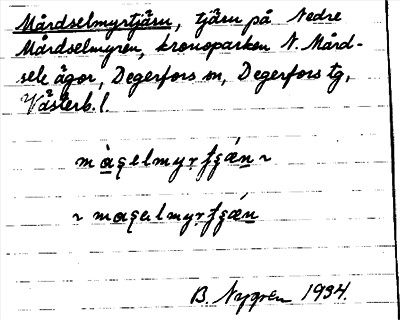 Mårdselmyrtjärn, tjärn på Nedre
Mårdselmyren, kronoparken N. Mård-
sele ägor, Degerfors sn, Degerfors tg,
Västerb. l.
B. Nygren 1934.